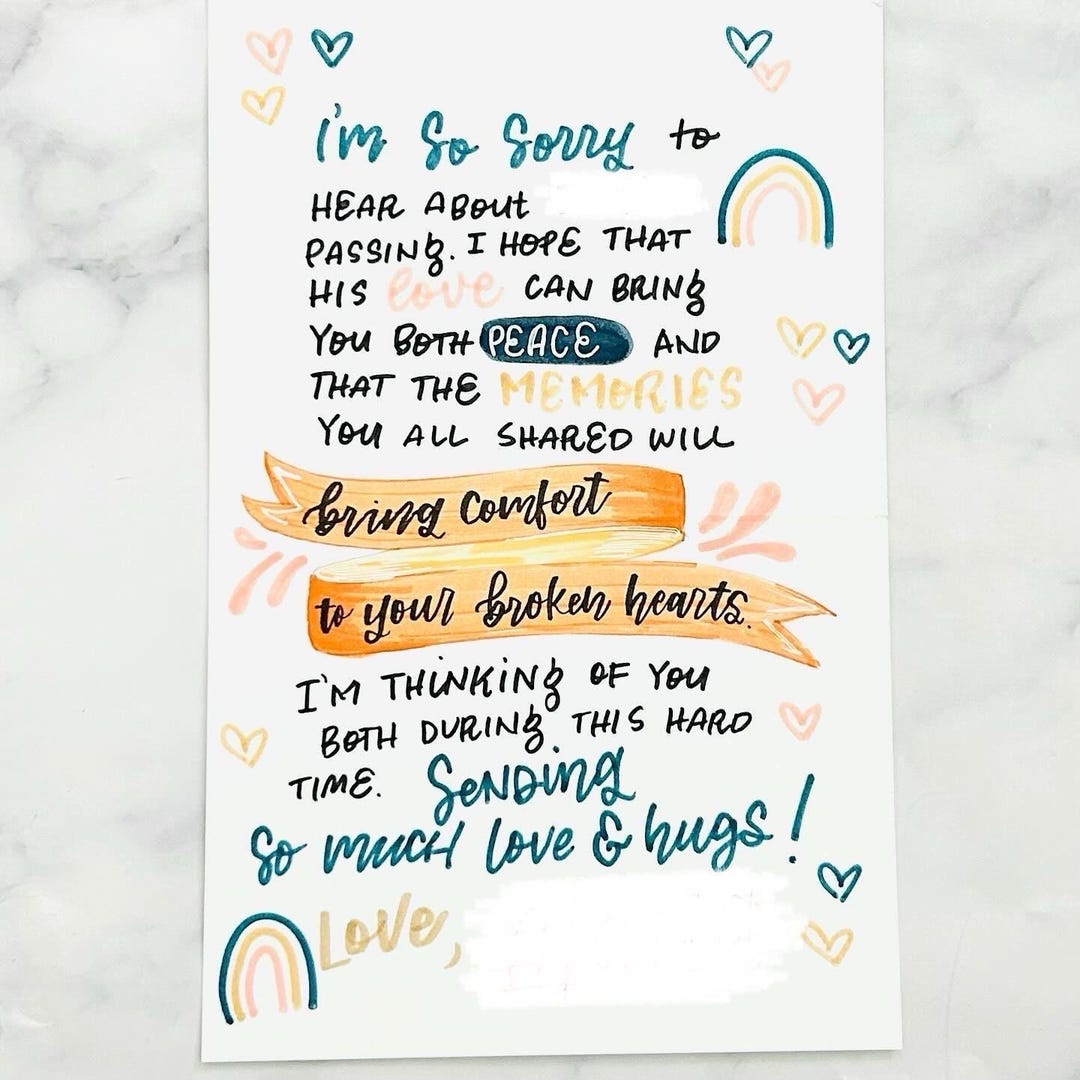 I'm So Sorry to
HEAR ABOUT
PASSING. I HOPE THAT
HIS love CAN BRING
YOU BOTH PEACE AND
THAT THE MEMORIES
YOU ALL SHARED WILL
bring comfort
to your broken hearts.
I'M THINKING OF YOU
BOTH DURING THIS HARD
TIME. SENDING
So much love & hugs!
Love,